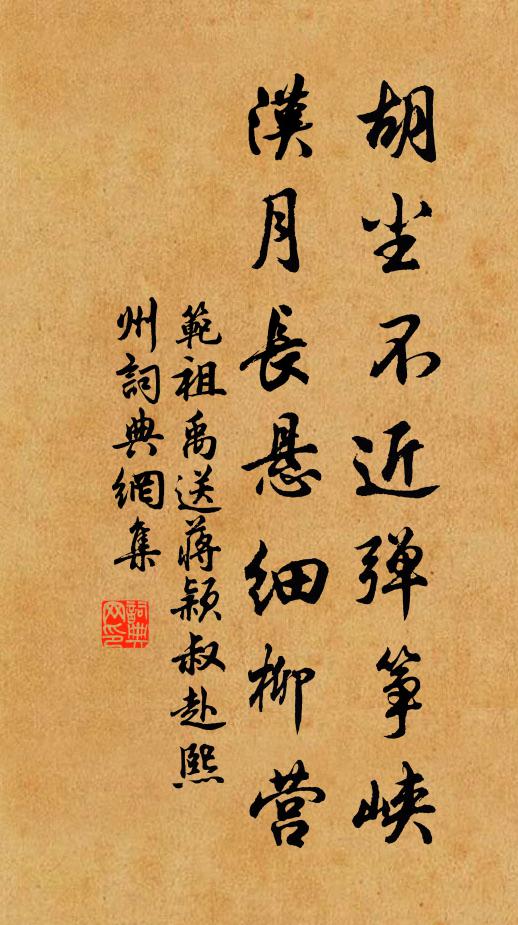 胡尘不近弹筝峡
漢月長悬细柳营
範祖禹送蔣颖叔赴熙
州詞典網集
詞典
网印